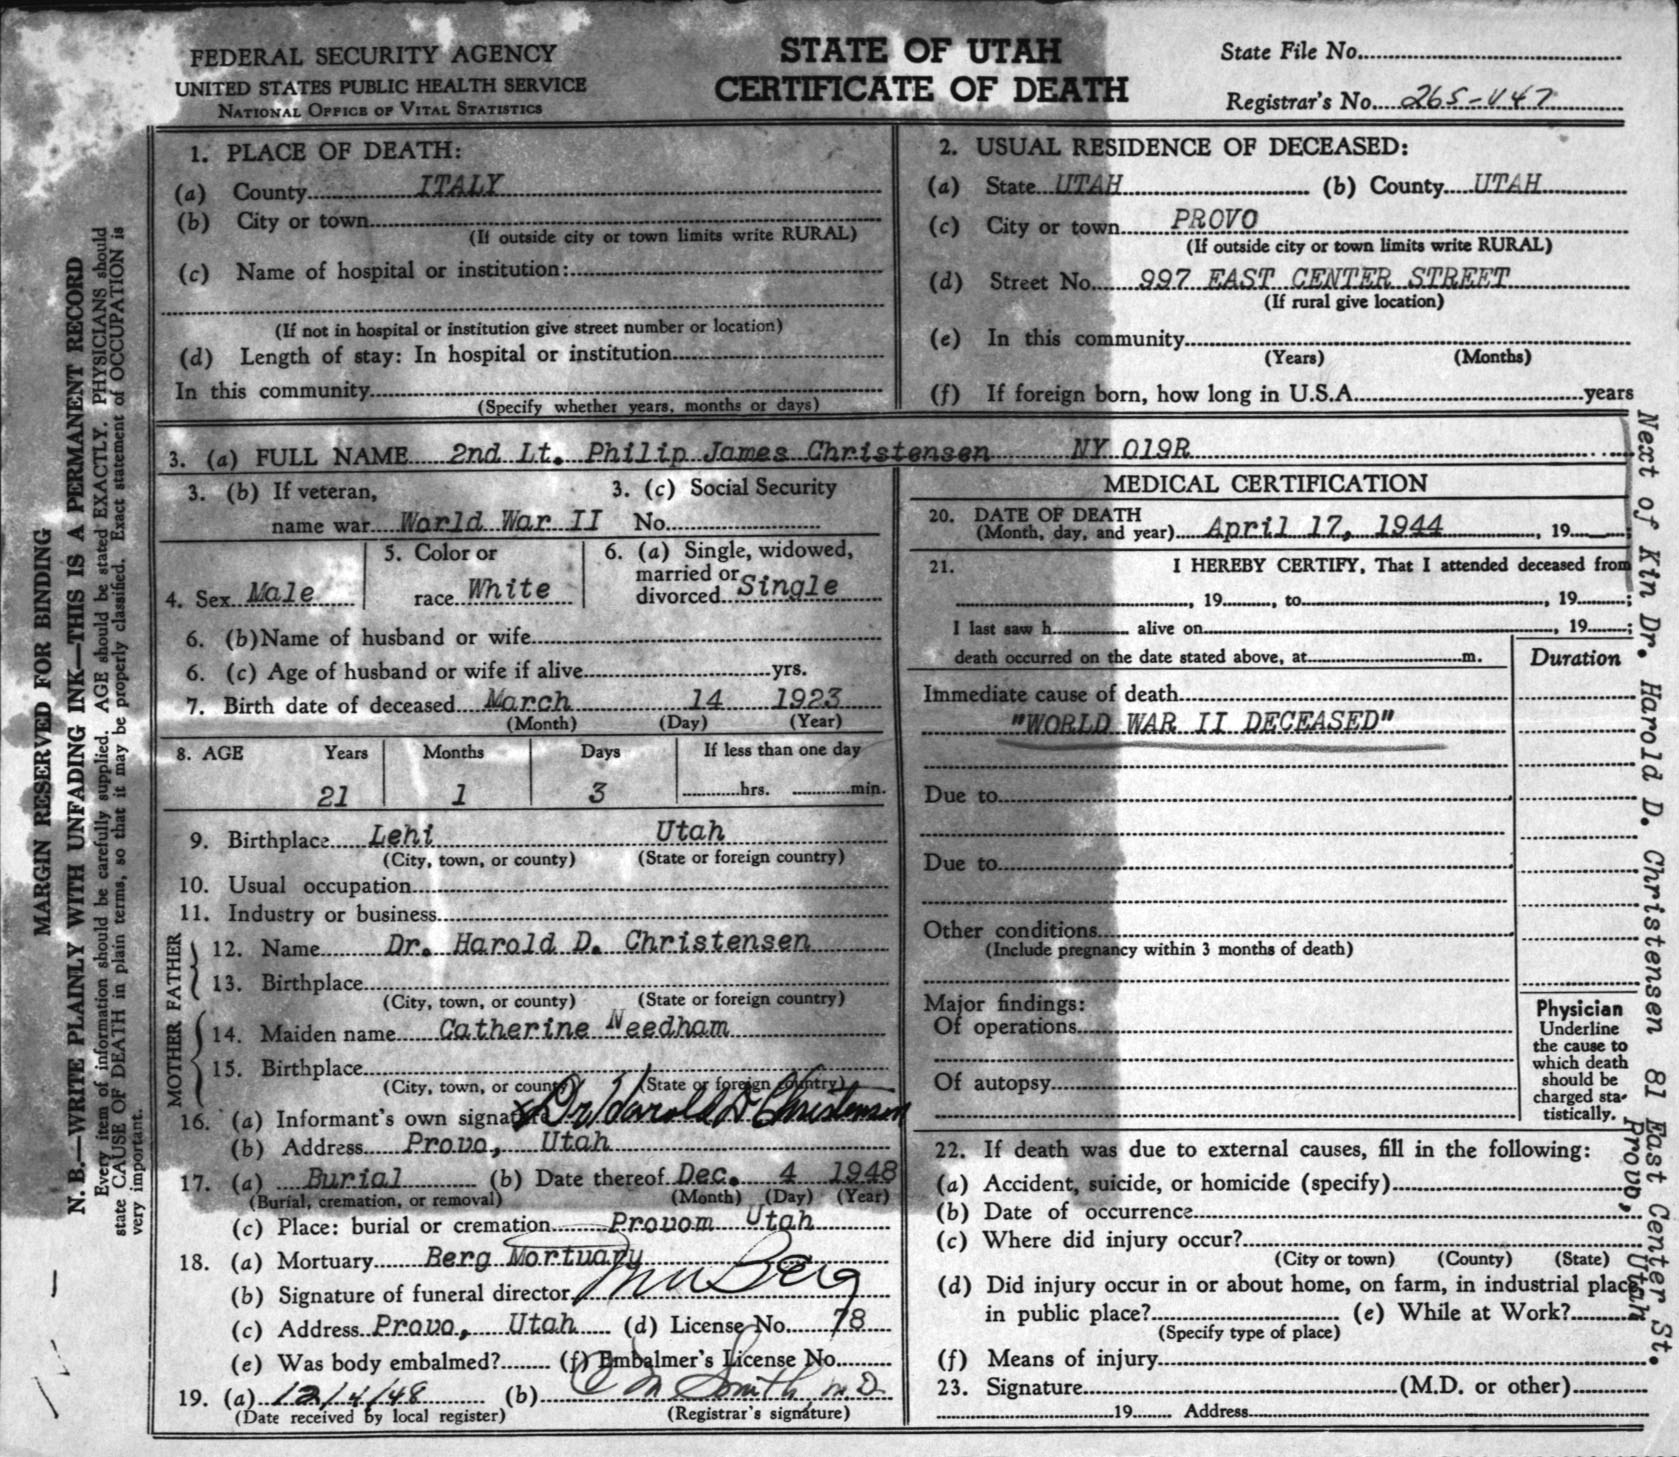 FEDERAL SECURITY AGENCY
UNITED STATES PUBLIC HEALTH SERVICE
NATIONAL OFFICE OF VITAL STATISTICS
STATE OF UTAH
CERTIFICATE OF DEATH
State File No.
Registrar's No. 265-V47
MARGIN RESERVED FOR BINDING
N. B.—WRITE PLAINLY WITH UNFADING INK—THIS IS A PERMANENT RECORD
Every item of information should be carefully supplied. AGE should be stated EXACTLY. PHYSICIANS should
state CAUSE OF DEATH in plain terms, so that it may be properly classified. Exact statement of OCCUPATION is
very important.
1. PLACE OF DEATH:
(a) County ITALY
(b) City or town
(If outside city or town limits write RURAL)
(c) Name of hospital or institution:
(If not in hospital or institution give street number or location)
(d) Length of stay: In hospital or institution
In this community
(Specify whether years, months or days)
2. USUAL RESIDENCE OF DECEASED:
(a) State UTAH (b) County UTAH
(c) City or town PROVO
(If outside city or town limits write RURAL)
(d) Street No. 997 EAST CENTER STREET
(If rural give location)
(e) In this community
(Years) (Months)
(f) If foreign born, how long in U.S.A. years
3. (a) FULL NAME 2nd Lt. Philip James Christensen NY 019R
3. (b) If veteran,
name war World War II
3. (c) Social Security
No.
4. Sex Male
5. Color or
race White
6. (a) Single, widowed,
married or
divorced Single
6. (b) Name of husband or wife
6. (c) Age of husband or wife if alive yrs.
7. Birth date of deceased March 14 1923
(Month) (Day) (Year)
8. AGE Years Months Days If less than one day
21 1 3 hrs. min.
9. Birthplace Lehi Utah
(City, town, or county) (State or foreign country)
10. Usual occupation
11. Industry or business
FATHER
12. Name Dr. Harold D. Christensen
13. Birthplace
(City, town, or county) (State or foreign country)
MOTHER
14. Maiden name Catherine Needham
15. Birthplace
(City, town, or county) (State or foreign country)
16. (a) Informant's own signature x Dr Harold D Christensen
(b) Address Provo, Utah
17. (a) Burial (b) Date thereof Dec. 4 1948
(Burial, cremation, or removal) (Month) (Day) (Year)
(c) Place: burial or cremation Provom Utah
18. (a) Mortuary Berg Mortuary
(b) Signature of funeral director Berg
(c) Address Provo, Utah (d) License No. 78
(e) Was body embalmed? (f) Embalmer's License No.
19. (a) 12/4/48 (b) Smith, M D
(Date received by local register) (Registrar's signature)
MEDICAL CERTIFICATION
20. DATE OF DEATH
(Month, day, and year) April 17, 1944, 19 ;
21. I HEREBY CERTIFY, That I attended deceased from
, 19 , to , 19 ;
I last saw h alive on , 19 ;
death occurred on the date stated above, at m.
Duration
Immediate cause of death
"WORLD WAR II DECEASED"
Due to
Due to
Other conditions
(Include pregnancy within 3 months of death)
Major findings:
Of operations
Of autopsy
Physician
Underline
the cause to
which death
should be
charged sta-
tistically.
22. If death was due to external causes, fill in the following:
(a) Accident, suicide, or homicide (specify)
(b) Date of occurrence
(c) Where did injury occur?
(City or town) (County) (State)
(d) Did injury occur in or about home, on farm, in industrial place
in public place? (e) While at Work?
(Specify type of place)
(f) Means of injury
23. Signature (M.D. or other)
19 Address
Next of Kin Dr. Harold D. Christensen 81 East Center St.
Provo, Utah